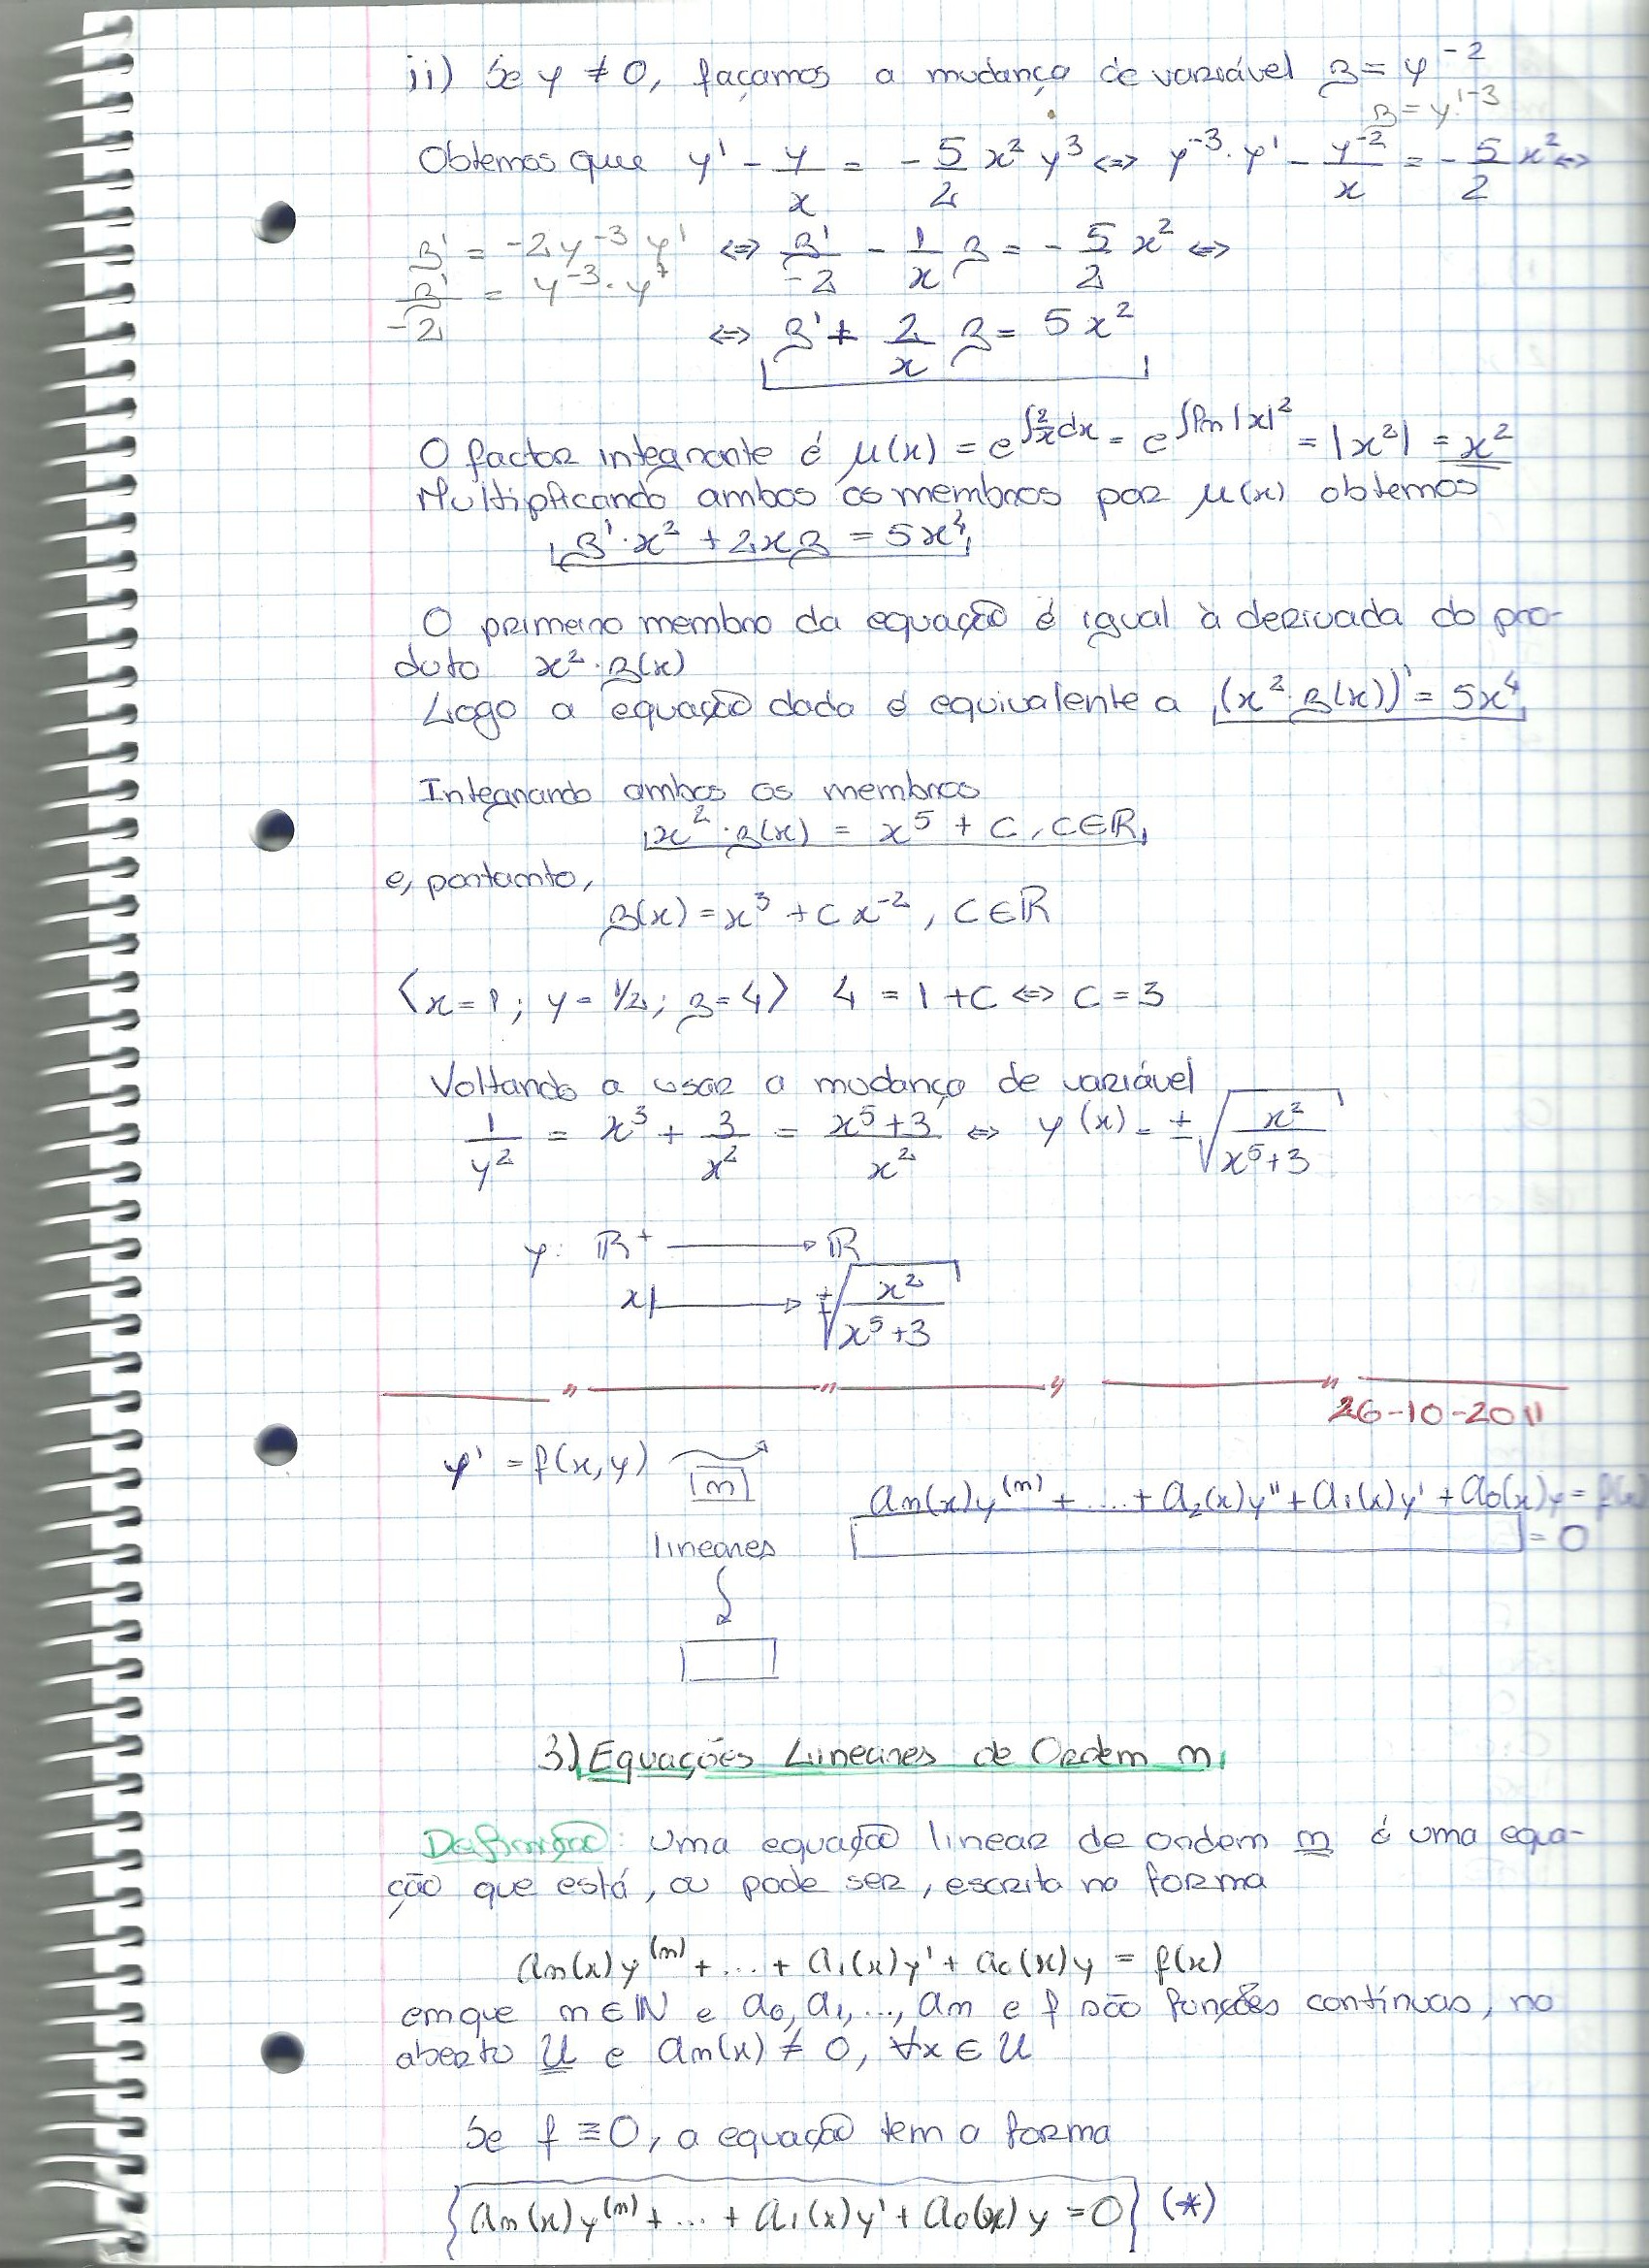 ii) Se y ≠ 0, façamos a mudança de variável z = y⁻²
z = y¹⁻³
Obtemos que y' - y/x = -5/2 x² y³ ⇔ y⁻³·y' - y⁻²/x = -5/2 x² ⇔
z' = -2y⁻³y' ⇔ z'/-2 - 1/x z = -5/2 x² ⇔
z'/-2 = y⁻³·y'
⇔ z' + 2/x z = 5x²
O factor integrante é μ(x) = e^∫2/x dx = e^∫ln|x|² = |x²| = x²
Multiplicando ambos os membros por μ(x) obtemos
z'·x² + 2xz = 5x⁴
O primeiro membro da equação é igual à derivada do pro-
duto x²·z(x)
Logo a equação dada é equivalente a (x²·z(x))' = 5x⁴
Integrando ambos os membros
x²·z(x) = x⁵ + C, C∈ℝ
e, portanto,
z(x) = x³ + C x⁻², C∈ℝ
⟨x=1; y=1/2; z=4⟩ 4 = 1+C ⇔ C = 3
Voltando a usar a mudança de variável
1/y² = x³ + 3/x² = (x⁵+3)/x² ⇔ y(x) = ±√(x²/(x⁵+3))
y: ℝ⁺ → ℝ
x ↦ ±√(x²/(x⁵+3))
26-10-2011
y' = f(x,y) [n]
an(x)y⁽ⁿ⁾ + .... + a₂(x)y'' + a₁(x)y' + a₀(x)y = f(x)
lineares = 0
3) Equações Lineares de Ordem n
Definição: Uma equação linear de ordem n é uma equa-
ção que está, ou pode ser, escrita na forma
an(x)y⁽ⁿ⁾ + ... + a₁(x)y' + a₀(x)y = f(x)
em que n∈ℕ e a₀, a₁, ..., an e f são funções contínuas, no
aberto U e an(x) ≠ 0, ∀x ∈ U
Se f ≡ 0, a equação tem a forma
{an(x)y⁽ⁿ⁾ + ... + a₁(x)y' + a₀(x)y = 0} (*)